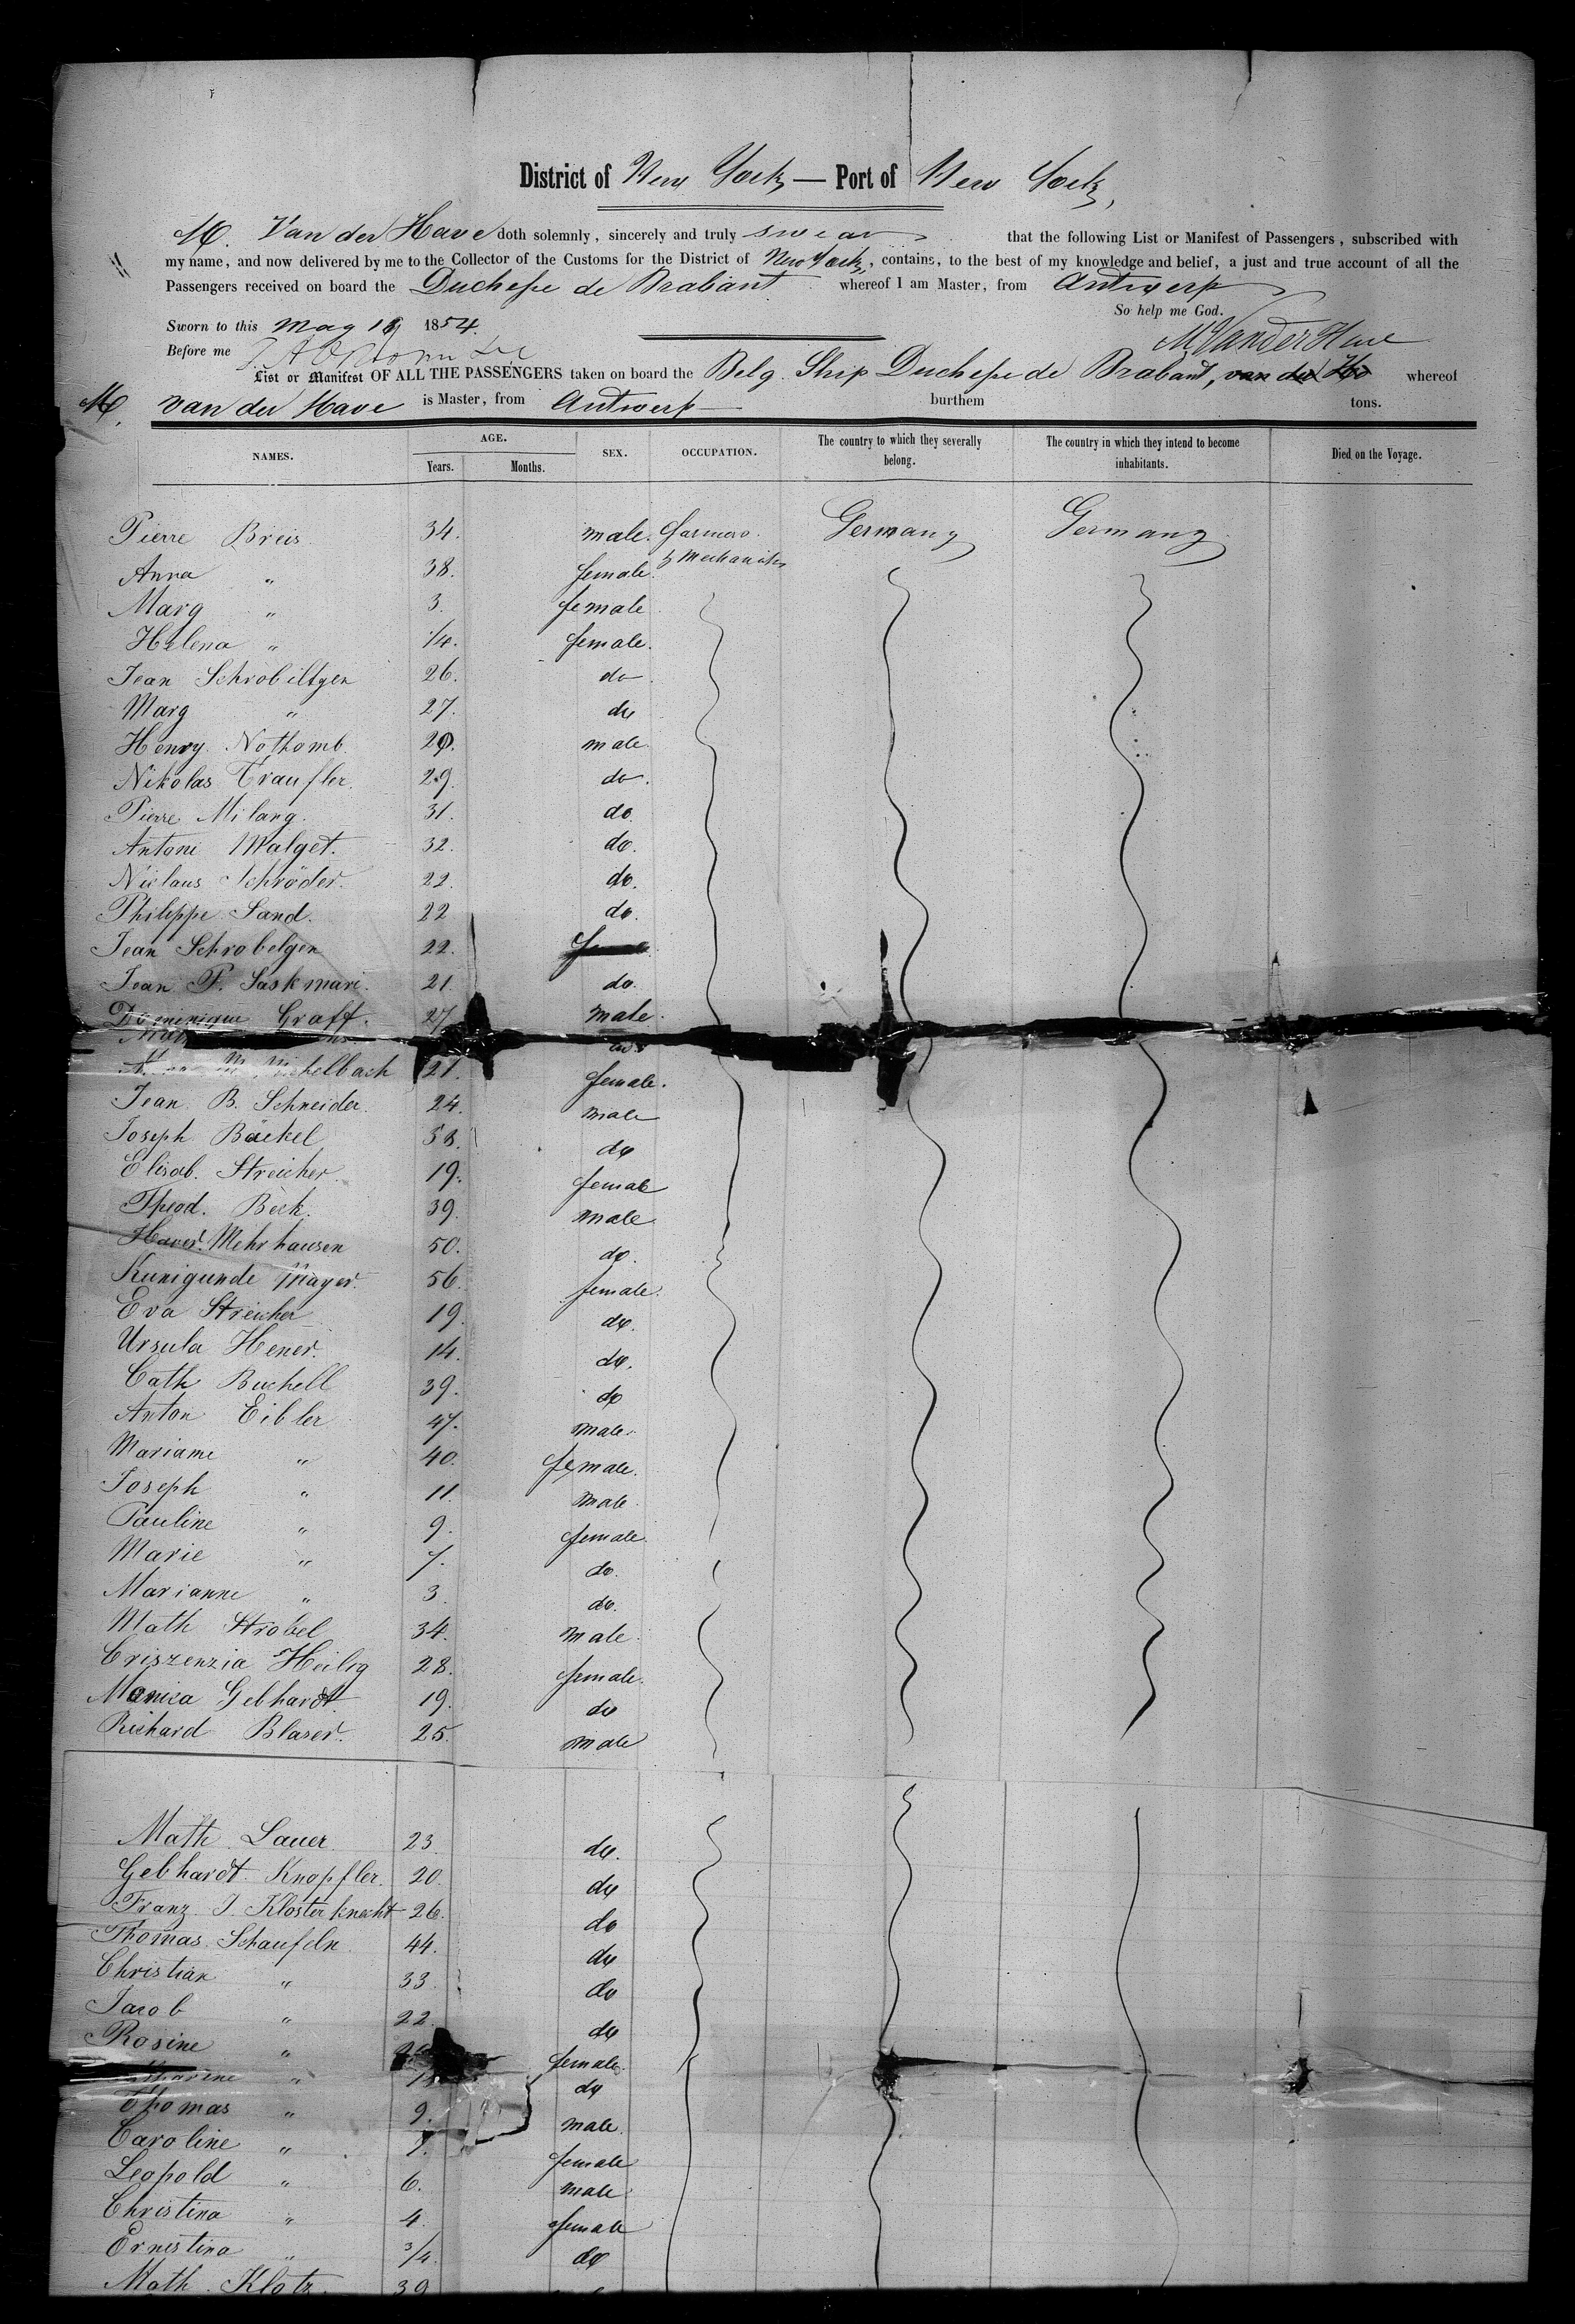 District of New York — Port of New York,
M. Van der Have doth solemnly, sincerely and truly swear that the following List or Manifest of Passengers, subscribed with
my name, and now delivered by me to the Collector of the Customs for the District of New York, contains, to the best of my knowledge and belief, a just and true account of all the
Passengers received on board the Duchesse de Brabant whereof I am Master, from Antwerp
So help me God.
Sworn to this May 1854.
M Van der Have
Before me
List or Manifest OF ALL THE PASSENGERS taken on board the Belg. Ship Duchesse de Brabant, van der Ho whereof
M. van der Have is Master, from Antwerp burthem tons.
NAMES. AGE. Years. Months. SEX. OCCUPATION. The country to which they severally belong. The country in which they intend to become inhabitants. Died on the Voyage.
Pierre Breis 34. male. farmers Germany Germany
Anna " 38. female. & Mechanics
Marg " 3. female
Helena " 1/4. female.
Jean Schrobiltgen 26. do
Marg " 27. do
Henry Nothomb. male.
Nikolas Traufler. 29. do.
Pierre Milang. 31. do.
Antoni Malget. 32. do.
Niclaus Schröder. 22. do.
Philippe Sand. 22 do.
Jean Schrobelgen 22.
Jean P. Saskmari. 21. do.
Dominique Graff. 27 Male.
do
Michelbach 21. female.
Jean B. Schneider. 24. Male
Joseph Bäckel 58. do
Elisab. Streicher. 19. female
Theod. Beck. 39. Male.
Xaver Mehrhausen 50. do.
Kunigunde Mayer. 56. female.
Eva Streicher 19. do.
Ursula Hener. 14. do.
Cath Buchell 39. do
Anton Eibler 47. Male.
Mariame " 40. female.
Joseph " 11. Male.
Pauline " 9. female.
Marie " 7. do.
Marianne " 3. do.
Math Strobel 34. Male.
Criszenzia Heilig 28. female.
Monica Gebhardt 19. do
Richard Blaser. 25. Male
Math Lauer 23. do.
Gebhardt Knopfler. 20. do
Franz J. Klosterknecht 26. do
Thomas Schaufeln 44. do
Christian " 33. do
Jacob " 22. do
Rosine " female.
" do
Thomas " 9. male.
Caroline " 7. female
Leopold " 6. male.
Christina " 4. female
Ernestina " 3/4. do
Math. Klotz. 39